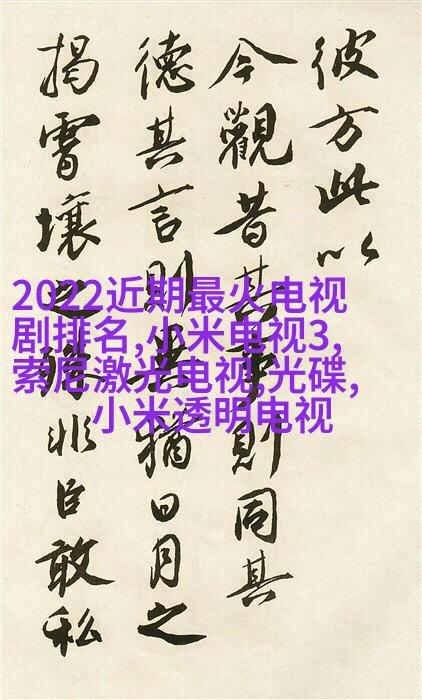 彼方此以
今觀昔其事則同其
德其言則猶日月之
揭霄壤之非臣敢私
2022近期最火电视
剧排名,小米电视3,
索尼激光电视,光碟,
小米透明电视